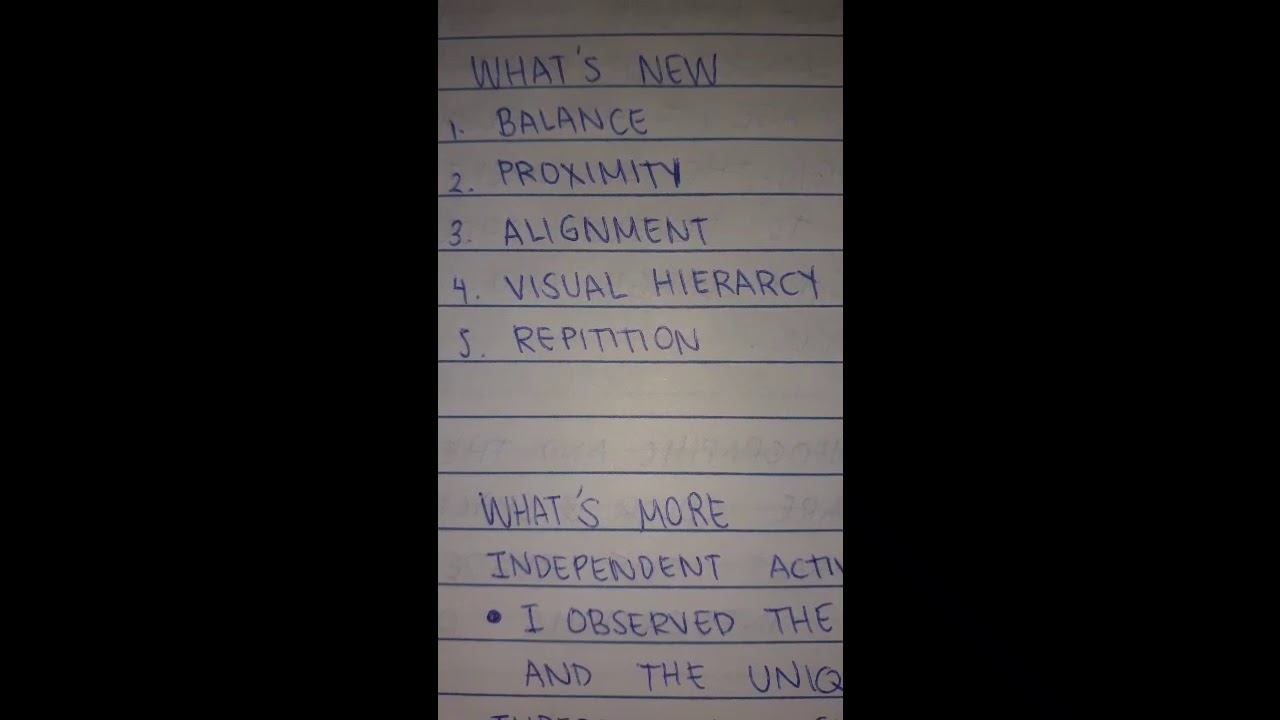 WHAT'S NEW
1. BALANCE
2. PROXIMITY
3. ALIGNMENT
4. VISUAL HIERARCY
5. REPITITION
WHAT'S MORE
INDEPENDENT
• I OBSERVED THE
AND THE